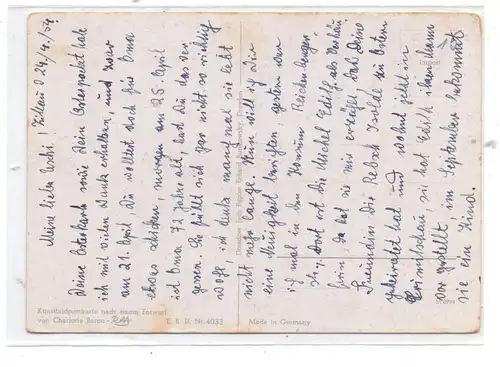 Zittau d. 24./4./59
Meine liebe Uschi!
Deine Osterkarte sowie dein Osterpacket hat
ich mit vielen Dank erhalten, und zwar
am 21. April, Du wolltest doch für Oma
etwas schicken, morgen am 25. April
ist Oma 72 Jahre alt, hast Du das ver
gessen. Sie fühlt sich gar nicht so richtig
wohl, ich denke manchmal sie lebt
nicht mehr lange. Nun will ich Dir
eine Neuigkeit berichten, gestern war
ich mal in dem Konsum
dort ist die Michel Edith als Verkäu
ferin da hat sie mir erzählt, das Deine
Freundin die Isolde zu Ostern
geheiratet hat und wohnt jetzt in
Crimmitschau sie hat Edith ihren Mann
vor gestellt, im September bekommt
sie ein Kind.
Kunstbildpostkarte nach einem Entwurf
von Charlotte Baron-RAA
E. K. D. Nr. 4033
Made in Germany
Import